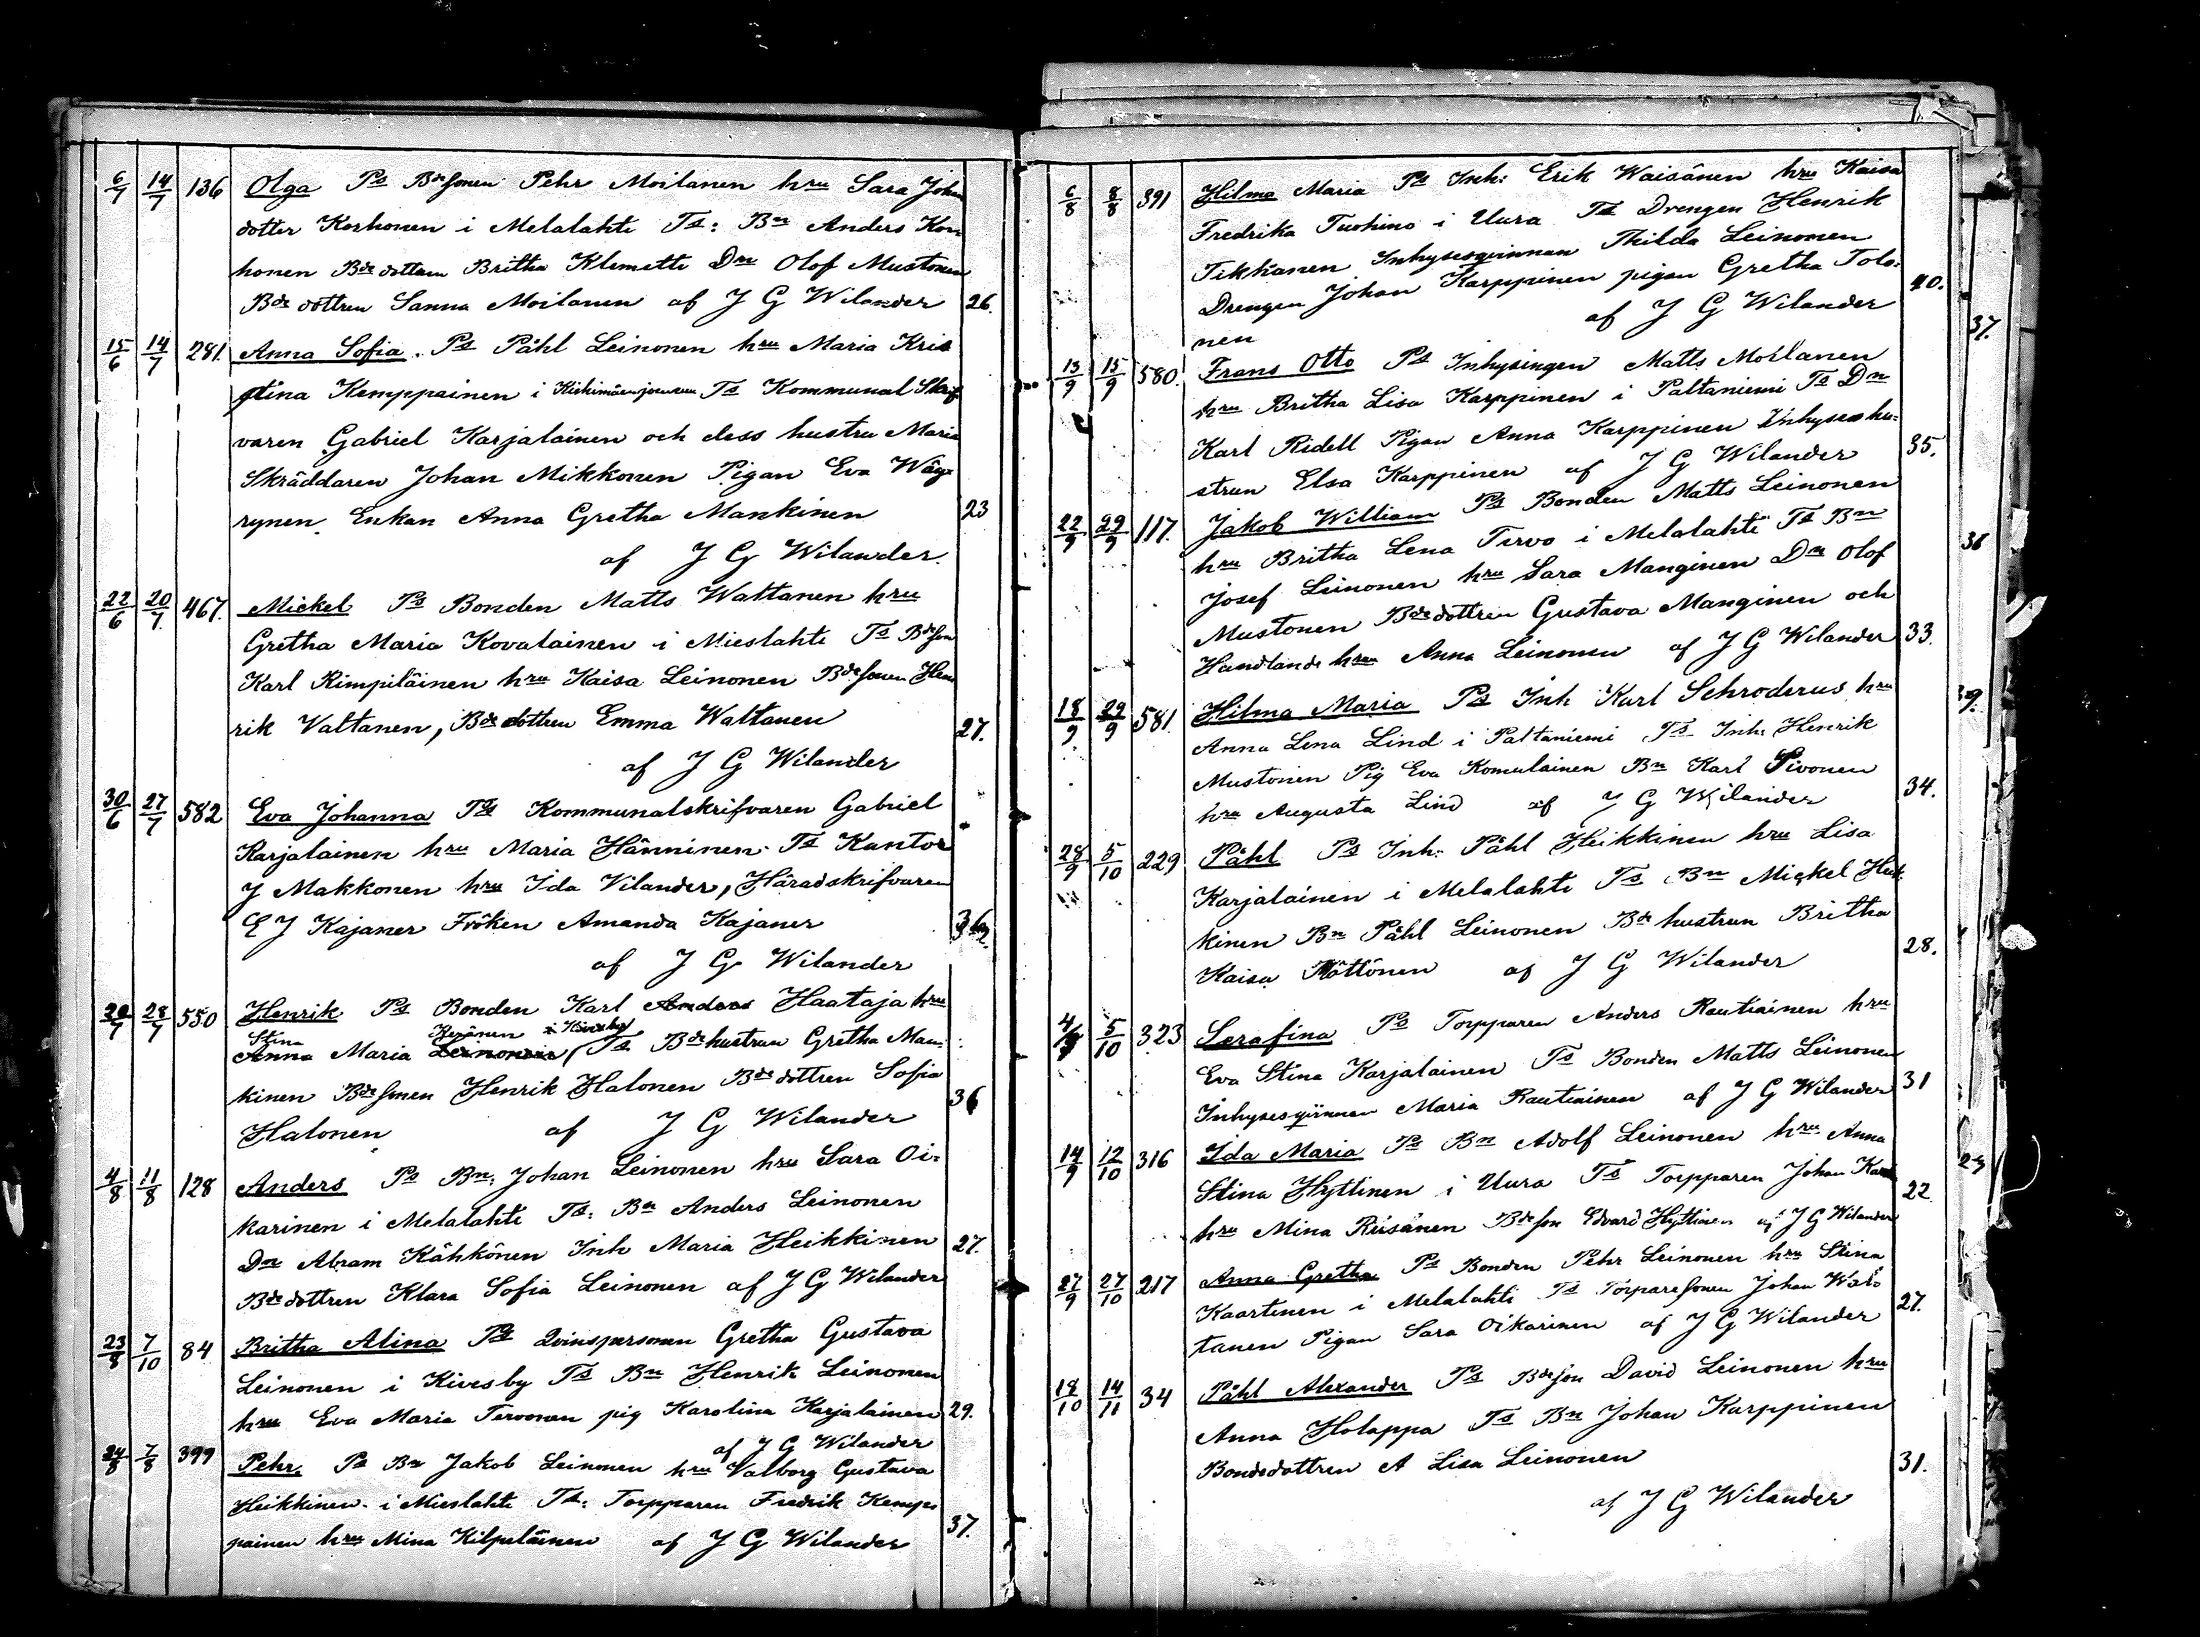 6/7 14/7 136 Olga Ps Bdesonen Pehr Moilanen hru Sara Johan
dotter Korhonen i Melalahti Ts: Bn Anders Kor-
honen Bdedottern Britha Klemetti Dn Olof Mustonen
Bdedottren Sanna Moilanen af J G Wilander 26.
15/6 14/7 281. Anna Sofia. Ps Påhl Leinonen hru Maria Kris
stina Kemppainen i Ts Kommunal Skrif
varen Gabriel Karjalainen och dess hustru Maria
Skräddaren Johan Mikkonen Pigan Eva Väy-
rynen. Enkan Anna Gretha Mankinen 23
af J G Wilander.
22/6 20/7 467. Mickel Ps Bonden Matts Waltanen hru
Gretha Maria Kovalainen i Mieslahti Ts Bdeson
Karl Kimpiläinen hru Kaisa Leinonen Bdesonen Hen
rik Valtanen, Bdedottren Emma Waltanen 27.
af J G Wilander
30/6 27/7 582 Eva Johanna Ps Kommunalskrifvaren Gabriel
Karjalainen hru Maria Hänninen. Ts Kantor
J Makkonen hru Ida Vilander, Häradskrifvaren
E J Kajaner Fröken Amanda Kajaner
af J G Wilander
20/7 28/7 550 Henrik Ps Bonden Karl Anders Haataja hru
Stina Keränen i Kivesby
Anna Maria Leinonen (Ts Bdehustrun Gretha Man-
kinen Bdesonen Henrik Halonen Bdedottren Sofia 36
Halonen af J G Wilander
4/8 11/8 128 Anders Ps Bn: Johan Leinonen hru Sara Oi-
karinen i Melalahti Ts: Bn Anders Leinonen
Dn Abram Kähkönen Inh Maria Heikkinen 27.
Bdedottren Klara Sofia Leinonen af J G Wilander
23/8 7/10 84 Britha Alina Ps Qvinspersonen Gretha Gustava
Leinonen i Kivesby Ts Bn Henrik Leinonen
hru Eva Maria Tervonen pig Karolina Karjalainen 29.
af J G Wilander
24/8 7/8 399 Pehr. Ps Bn Jakob Leinonen hru Valborg Gustava
Heikkinen i Mieslahti Ts: Torpparen Fredrik Kemp-
painen hru Mina Kilpeläinen af J G Wilander 37.
6/8 8/8 391 Hilma Maria Ps Inh: Erik Waisänen hru Kaisa
Fredrika Tuohino i Uura Ts Drengen Henrik
Tikkanen Inhysesqvinnan Thilda Leinonen
Drengen Johan Karppinen pigan Gretha Tolo- 40.
nen af J G Wilander
37.
13/9 15/9 580. Frans Otto Ps Inhysingen Matts Moilanen
hru Britha Lisa Karppinen i Paltaniemi Ts Dn
Karl Ridell Pigan Anna Karppinen Inhyseshu-
strun Elsa Karppinen af J G Wilander 35.
22/9 29/9 117. Jakob William Ps Bonden Matts Leinonen
hru Britha Lena Tervo i Melalahti Ts Bn
Josef Leinonen hru Sara Manginen Dn Olof
Mustonen Bdedottren Gustava Manginen och
Handlande hru Anna Leinonen af J G Wilander 33.
18/9 29/9 581. Hilma Maria Ps Inh Karl Schroderus hru
Anna Lena Lind i Paltaniemi Ts Inh: Henrik
Mustonen Pig Eva Komulainen Bn Karl Pivonen
hru Augusta Lind af J G Wilander 34.
28/9 5/10 229 Påhl Ps Inh: Påhl Heikkinen hru Lisa
Karjalainen i Melalahti Ts Bn Mickel Heik
kinen Bn Påhl Leinonen Bdehustrun Britha
Kaisa Möttönen af J G Wilander 28.
4/9 5/10 323 Serafina Ps Torpparen Anders Rautiainen hru
Eva Stina Karjalainen Ts Bonden Matts Leinonen
Inhysesqvinnan Maria Rautiainen af J G Wilander 31
14/9 12/10 316 Ida Maria Ps Bn Adolf Leinonen hru Anna
Stina Hyttinen i Uura Ts Torpparen Johan
hru Mina Riisänen Bdeson Edvard Hyttinen af J G Wilander 22
27/9 27/10 217 Anna Gretha Ps Bonden Pehr Leinonen hru Stina
Kaartinen i Melalahti Ts Torparesonen Johan Wal-
tanen Pigan Sara Oikarinen af J G Wilander 27.
18/10 14/11 34 Påhl Alexander Ps Bdeson David Leinonen hru
Anna Holappa Ts Bn Johan Karppinen
Bondedottren A Lisa Leinonen 31.
af J G Wilander